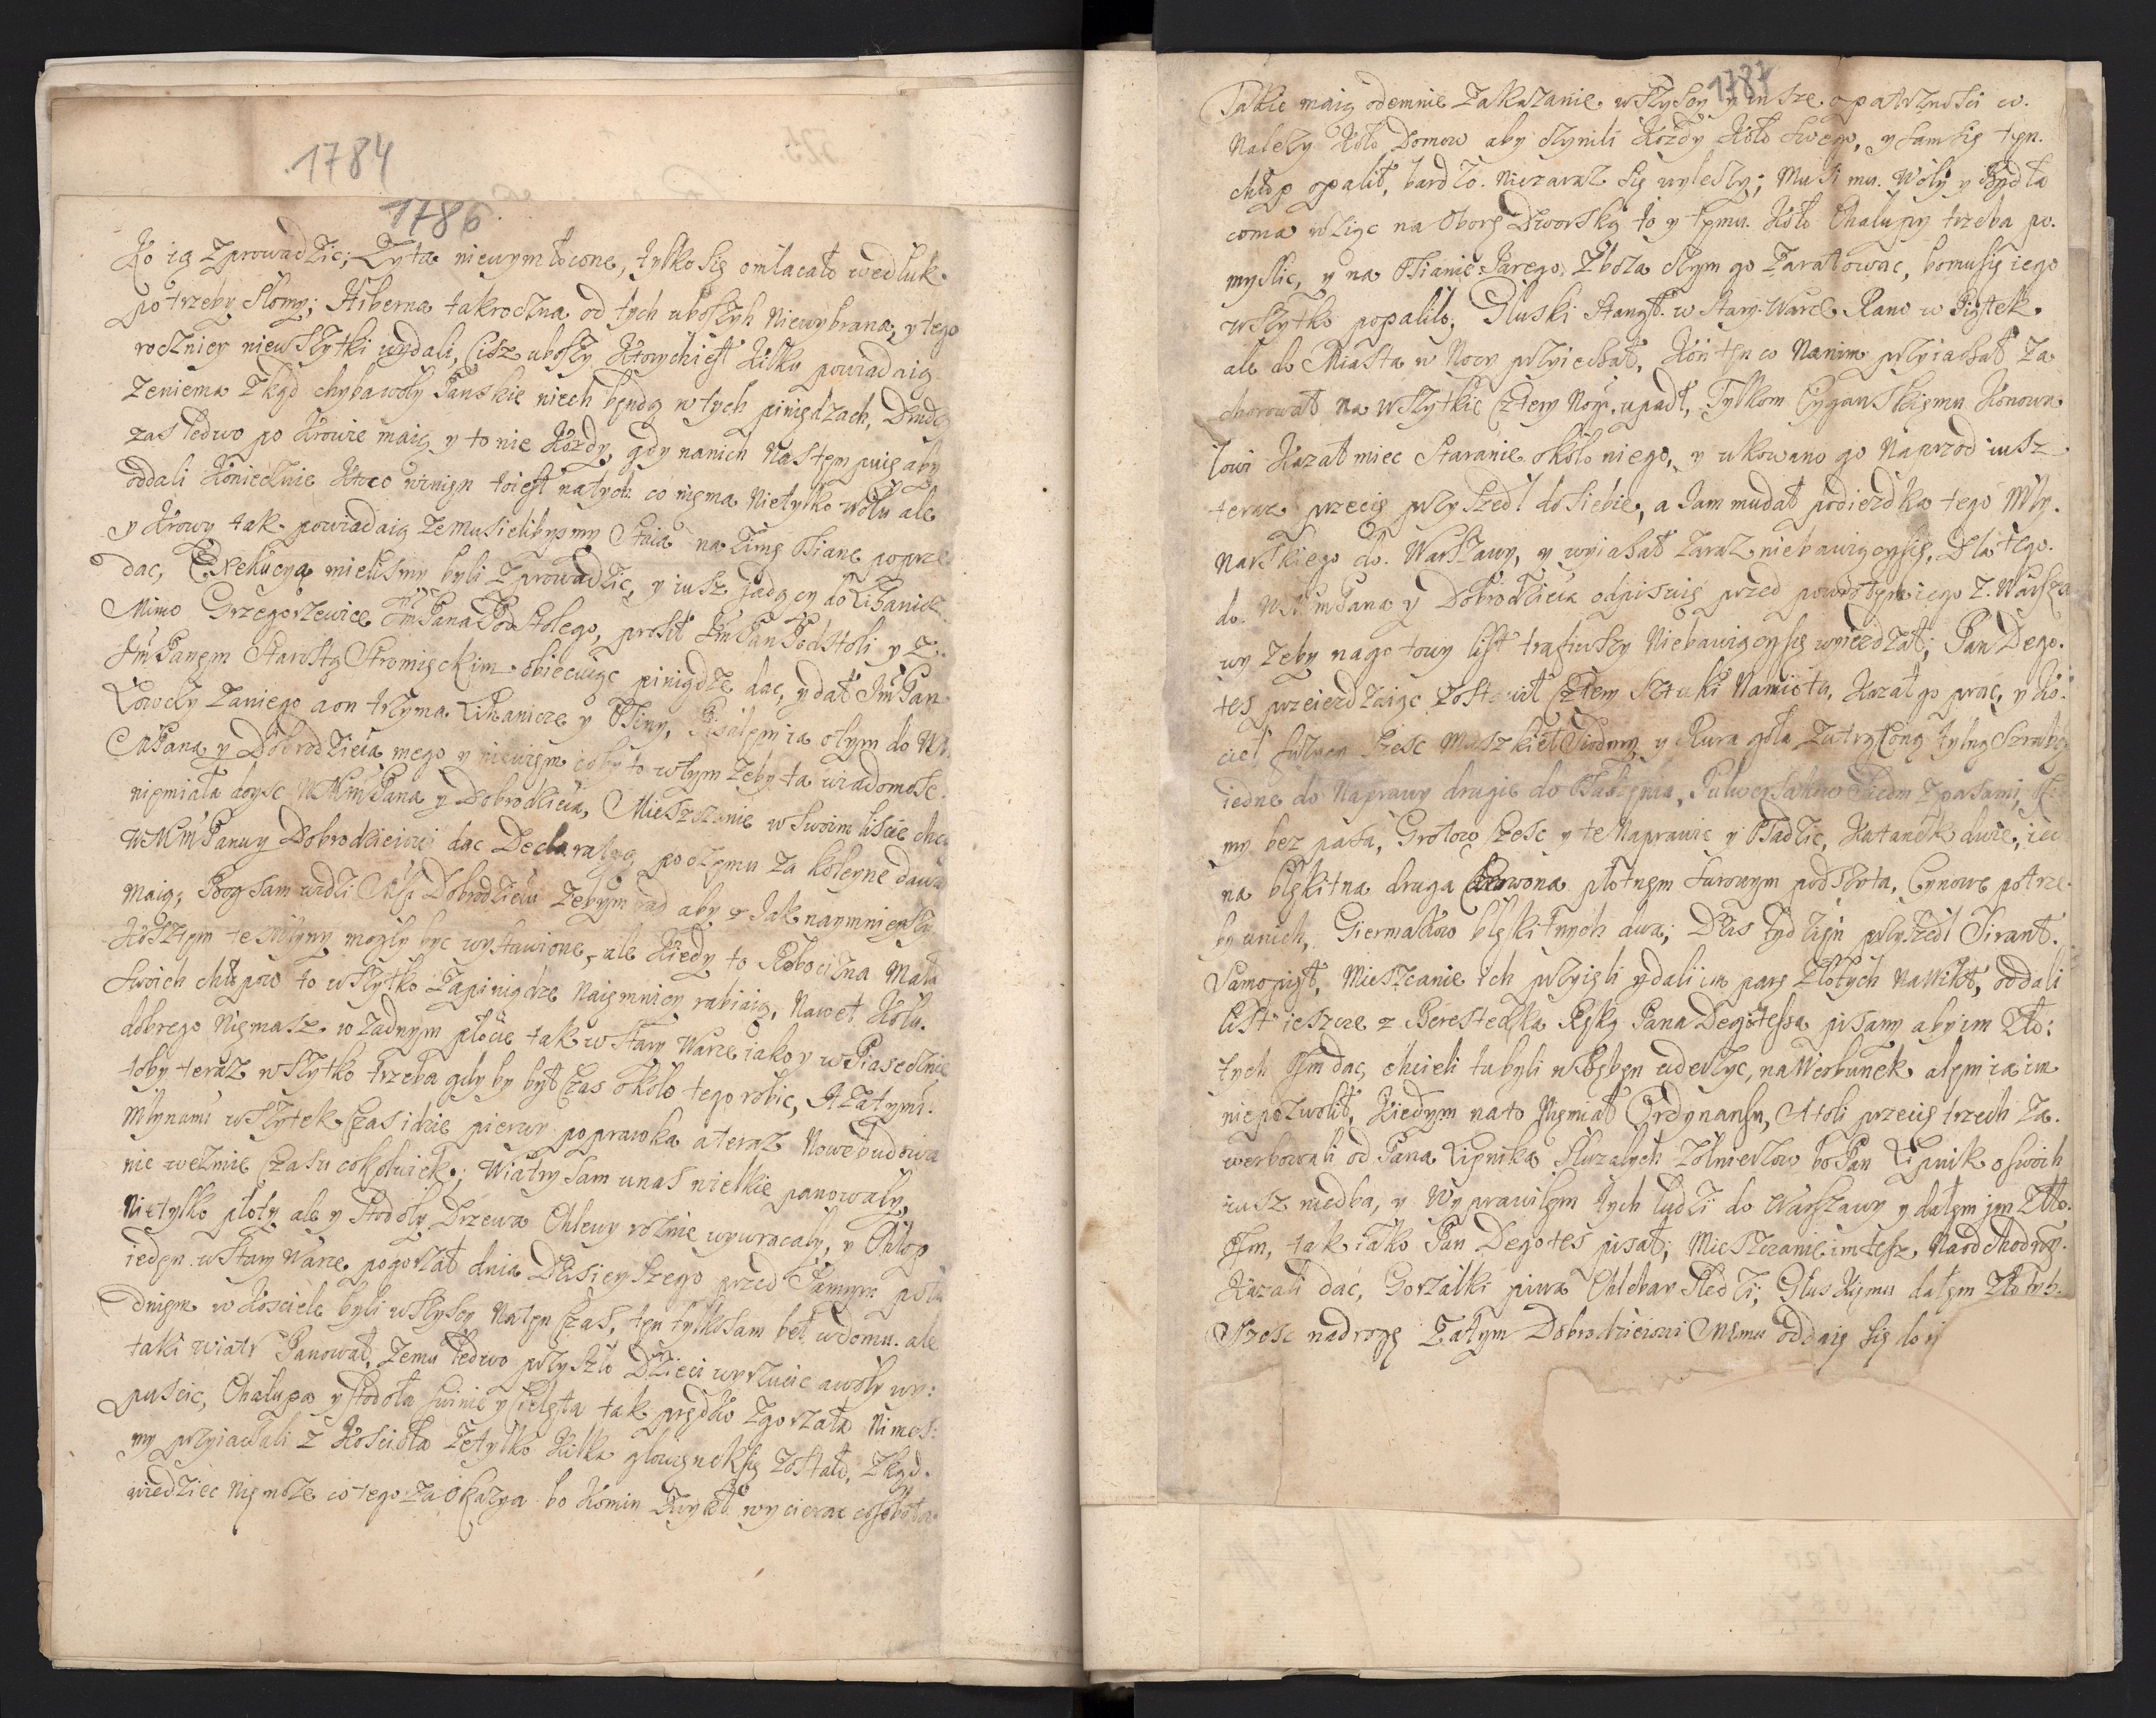 1784
1786
Ko ią Zprowadzic; Zyta niewymłocone, tylko się omłacało wedłuk
potrzeby słomy; Hiberna takroczna od tych uboszych Niewybrana, y tego
roczniey niewszytki wydali, Cisz uboszy Ktorychiest Kilku powiadaią
Zeniema Zkąd chybawoły Panskie niech będą wtych piniędzach, Drudzy
zas ledwo po Krowie maią y to nie Kozdy, gdy nanich Następuią aby
oddali Koniecznie Kto co winien toiest natych co niema Nietylko wołu ale
y Krowy tak powiadaią ze Musielibysmy Staia na Zimę Osiane poprze
dac, Exekucyą mielismy byli Zprowadzic, y iusz iadący do Lihanicz
Mimo Grzegorzewice JmPana Podstolego, prosił JmPan Podstoli y Z
JmPanem Starostą Stromięckim obiecuiąc piniądze dac, y dał JmPan
Łowczy Zaniego aon trzyma Lihanicze y Osiny, Pisałem ia otym do W
MPana y Dobrodzieia mego y niewiem coby to wtym Zeby ta wiadomosc
niemiała doysc WMMPana y Dobrodzieia, Mieszczanie w swoim liscie chcą
WMMPanuy Dobrodzieiowi dac Declaratyą poczemu Za koleyne dawa
Maią; Bog sam widzi MP Dobrodzieiu Zebym rad aby Jak naymnieyszy
Kosztem te młyny mogły byc wystawione, ale Kiedy to Robocizna Mała
Swoich chłopow to wszytko Zapiniądze Naiemnicy rabiaią, Nawet Kołu
dobrego Niemasz w Zadnym płocie tak w Stary Warce iako y w Piasecznie
toby teraz wszytko trzeba gdyby był Czas około tego robic, A Zatymi
Młynami wszytek Czas idzie pierwy poprawka a teraz Nowe budowa
nie wezmie Czasu cokolwiek; Wiatry sam unas wielkie panowały,
Nietylko płoty ale y Stodoły Drzewa Chlewy roznie wywracały, y Chłop
ieden w Stary Warce pogorzał dnia Dzisieyszego przed Samym połu
dniem w Kosciele byli wszyscy Naten Czas, ten tylkosam beł wdomu ale
taki wiatr Panował, Zemu ledwo przyszło Dzieci wyrzucic awoły wy:
puscic, Chałupa y stodoła swinie y Cielęta tak prędko Zgorzała Nimes:
my przyiachali Z Koscioła Zetylko Kilka głowienekSię Zostało, Zkąd
wiedziec Niemoze co tego Za okazya bo Komin Zwykł wycierac cosobota
1787
Takie maią odemnie Zakazanie wszyscy y insze opatrznosci co
Nalezy Koło Domow aby czynili Kozdy Koło Swego, y samsię ten
chłop opalił, bardzo Niezaraz się wyleczy; Musi mu Woły y Bydła
coma wziąc na Oborę Dworską to y temu Koło Chałupy trzeba po
myslic, y na Osianie Jarego Zboza czym go Zaratowac, bomusię iego
wszytko popaliło. Głuski Stanął w Stary Warce Rano w Piątek
ale do Miasta w Nocy przyiechał, Kon ten co Nanim przyiachał Za
chorował na wszytkie Cztery Nogi upadł, Tylkom Cyganskiemu Konowa
łowi Kazał miec Staranie około niego, y ukowano go Naprzod iusz
teraz przecię przyszedł do siebie, a Jam mudał podiezdka tego Mły
narskiego do Warszawy, y wyiahał Zaraz niebawiącysię, Dla tego
do WMmPana y Dobrodzieia odpisuię przed powrotem iego Z Warsza
wy Zeby nagotowy list trafiwszy Niebawiącysię wyiezdzał; Pan Dego
tes przeiezdzaiąc Zostawił Cztery Sztuki Namiotu, Kazał go prac, y Ko
cieł Szesc Muszkiet Siodmy y Rura goła Zutrąconą tylną Szrubą
iedne do Naprawy drugie do Osadzenia, Pulwersakow Siedm Zpasami,
my bez pasa, Grotow szesc y te Naprawic y Osadzic, Katanek dwie, ied
na błękitna druga Czerwona płotnem surowym podszyta, Cynowe potrze
by unich, Giermakow błękitnych dwa; Dzis Tydzien przyszedł Sirant
Samopięt, Mieszczanie ich przyięli ydaliim parę Złotych NaWikt, oddali
List ieszcze z Beresteczka Ręką Pana Degotessa pisany abyim Zło:
tych Osm dac, chcieli tubyli wBęben uderzyc, naWerbunek alem ia im
niepozwolił, Kiedym nato Niemiał Ordynansu, Atoli przecię trzech Za
werbowali od Pana Lipnika Słuzałych Zołnierzow, boPan Lipnik oswoich
iusz niedba, y Wyprawiłem tych ludzi do Warszawy y dałem jem Zło
Osm, tak iako Pan Degotes pisał; Mieszczanie imtesz Naodchodnę
Kazali dac, Gorzałki piwa Chleba y Sledzi; Głuskiemu dałem Złotych
Szesc nadrogę Zatym Dobrodzieiowi Memu oddaię się do